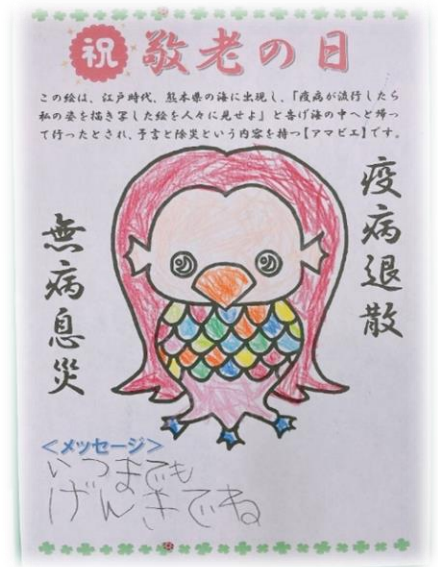 祝 敬老の日
この絵は、江戸時代、熊本県の海に出現し、「疫病が流行したら
私の姿を描き写した絵を人々に見せよ」と告げ海の中へと帰っ
て行ったとされ、予言と除災という内容を持つ【アマビエ】です。
疫病退散
無病息災
<メッセージ>
いつまでも
げんきでね